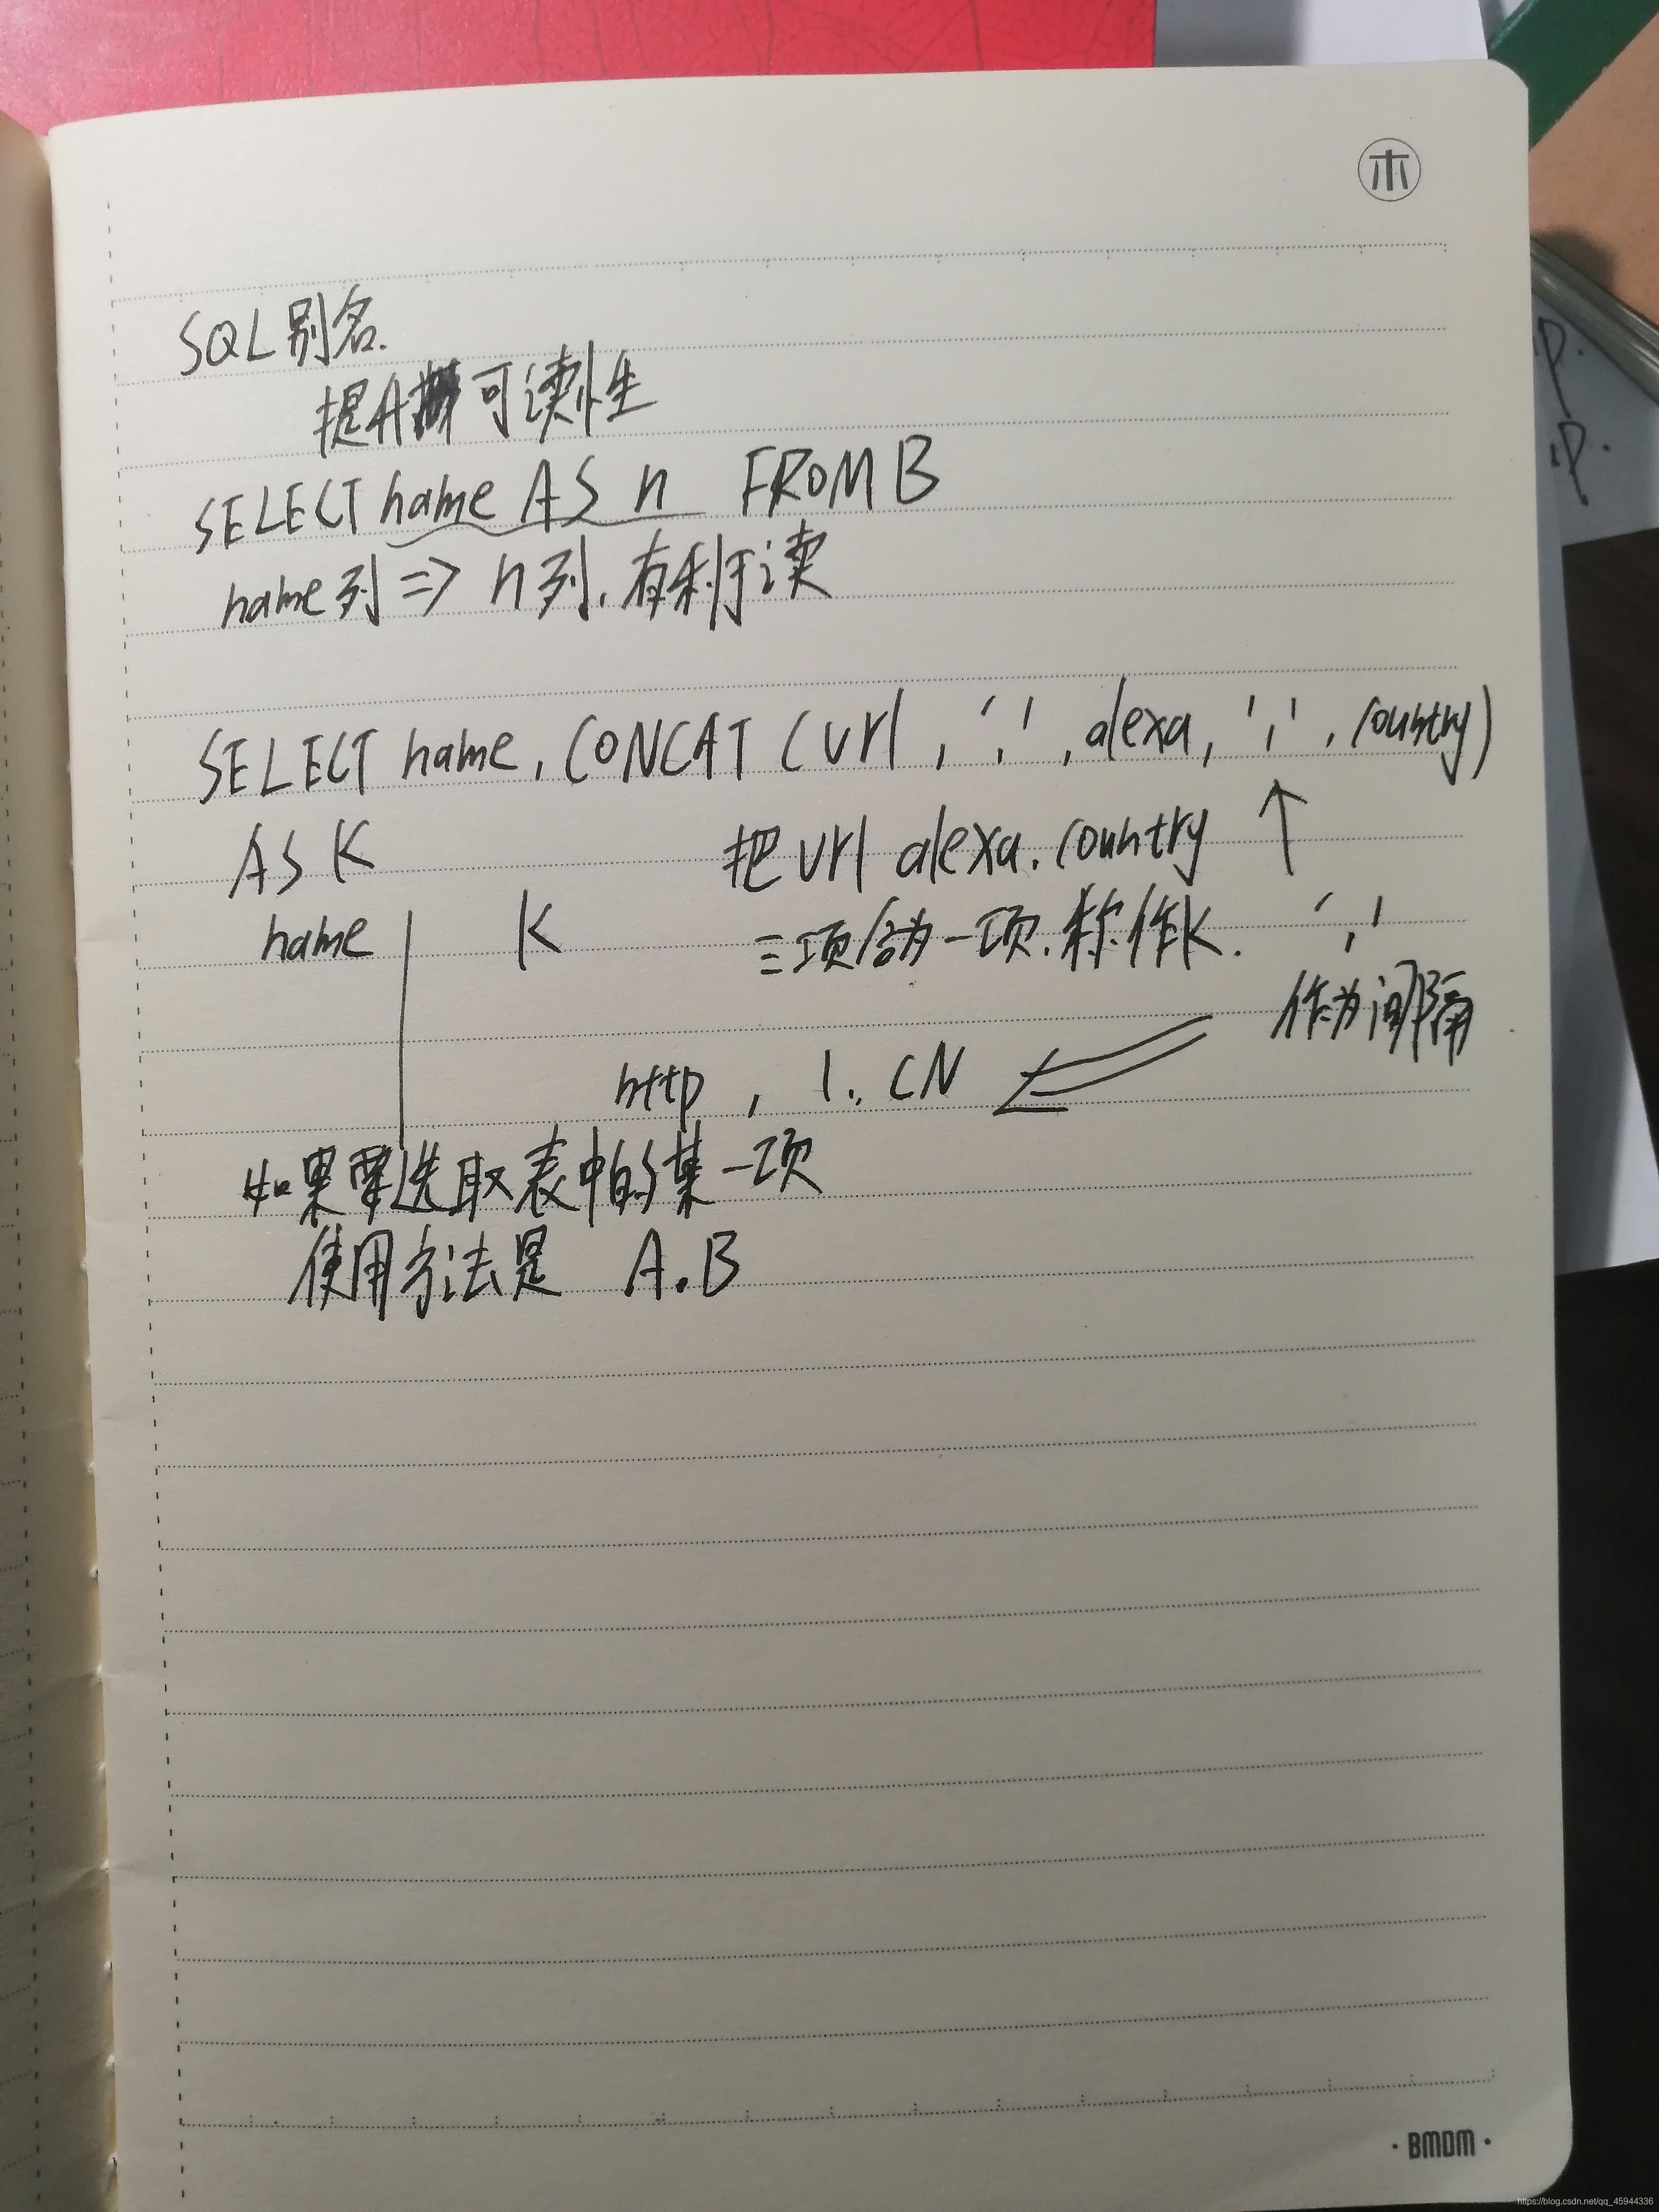 木
SQL别名.
提升 可读性
SELECT name AS n FROM B
name列 => n列. 有利于读
SELECT name, CONCAT (url, ',', alexa, ',', country)
AS K
把url alexa. country ↑
name K
三项合为一项. 称作K. ','
作为间隔
http , 1., CN
如果要选取表中的某一项
使用方法是 A.B
P.
P.
·BMDM·
https://blog.csdn.net/qq_45944336